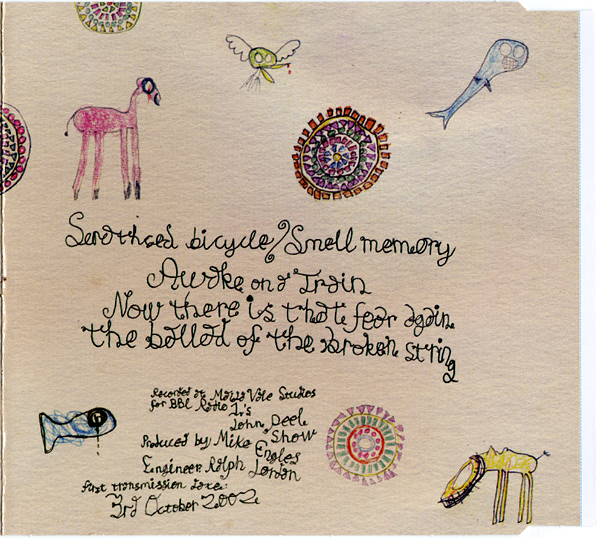 Scrathced bicycle/Smell memory
Awake on a Train
Now there is that fear again
the ballad of the broken string
Recorded at Maida Vale Studios
for BBC Radio 1's
John Peel
Show
Produced by: Mike Engles
Engineer Ralph Jordan
First transmission date:
3rd October 2002